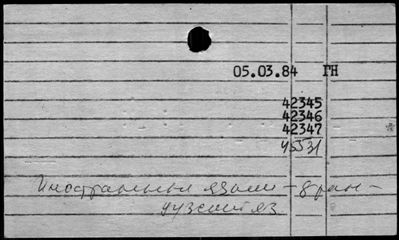 05.03.84 ГН
42345
42346
42347
45531
Иностранные языки – фран-
цузский яз